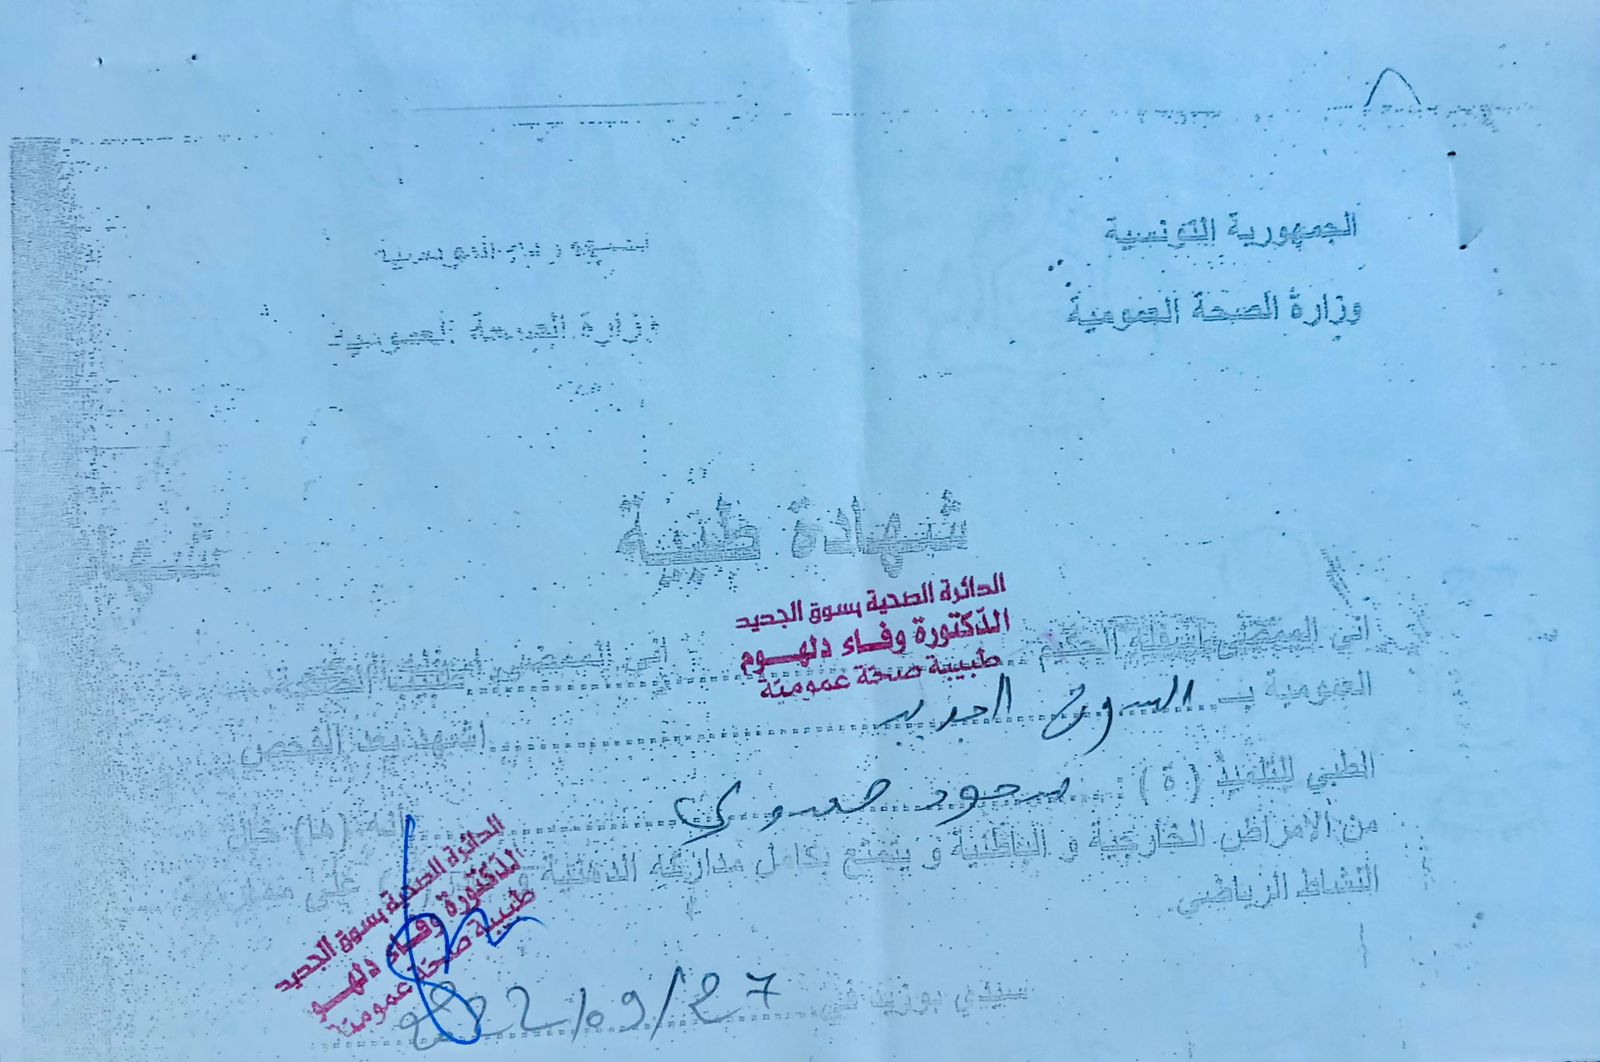 الجمهورية التونسية
وزارة الصحة العمومية
وزارة الصحة العمومية
شهادة طبية
الدائرة الصحية بسوق الجديد
الدّكتورة وفــاء دلهــوم
طبيبة صحّة عموميّة
اني الممضي اسفله الحكيم
اني الممضي اسفله الحكيم
العمومية بـ السوق الجديد اشهد بعد الفحص
الطبي للتلميذ ( ة ) : صعود انه (ها) خال
من الامراض الخارجية و الباطنية و يتمتع بكامل مداركه الذهنية و على ممارسة
النشاط الرياضي
الدائرة الصحية بسوق الجديد
الدّكتورة وفــاء دلهــوم
طبيبة صحّة عموميّة
سيدي بوزيد في 2022/09/27